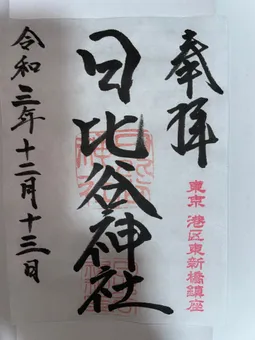 奉拝
東京 港区東新橋鎮座
日比谷神社
令和三年十二月十三日